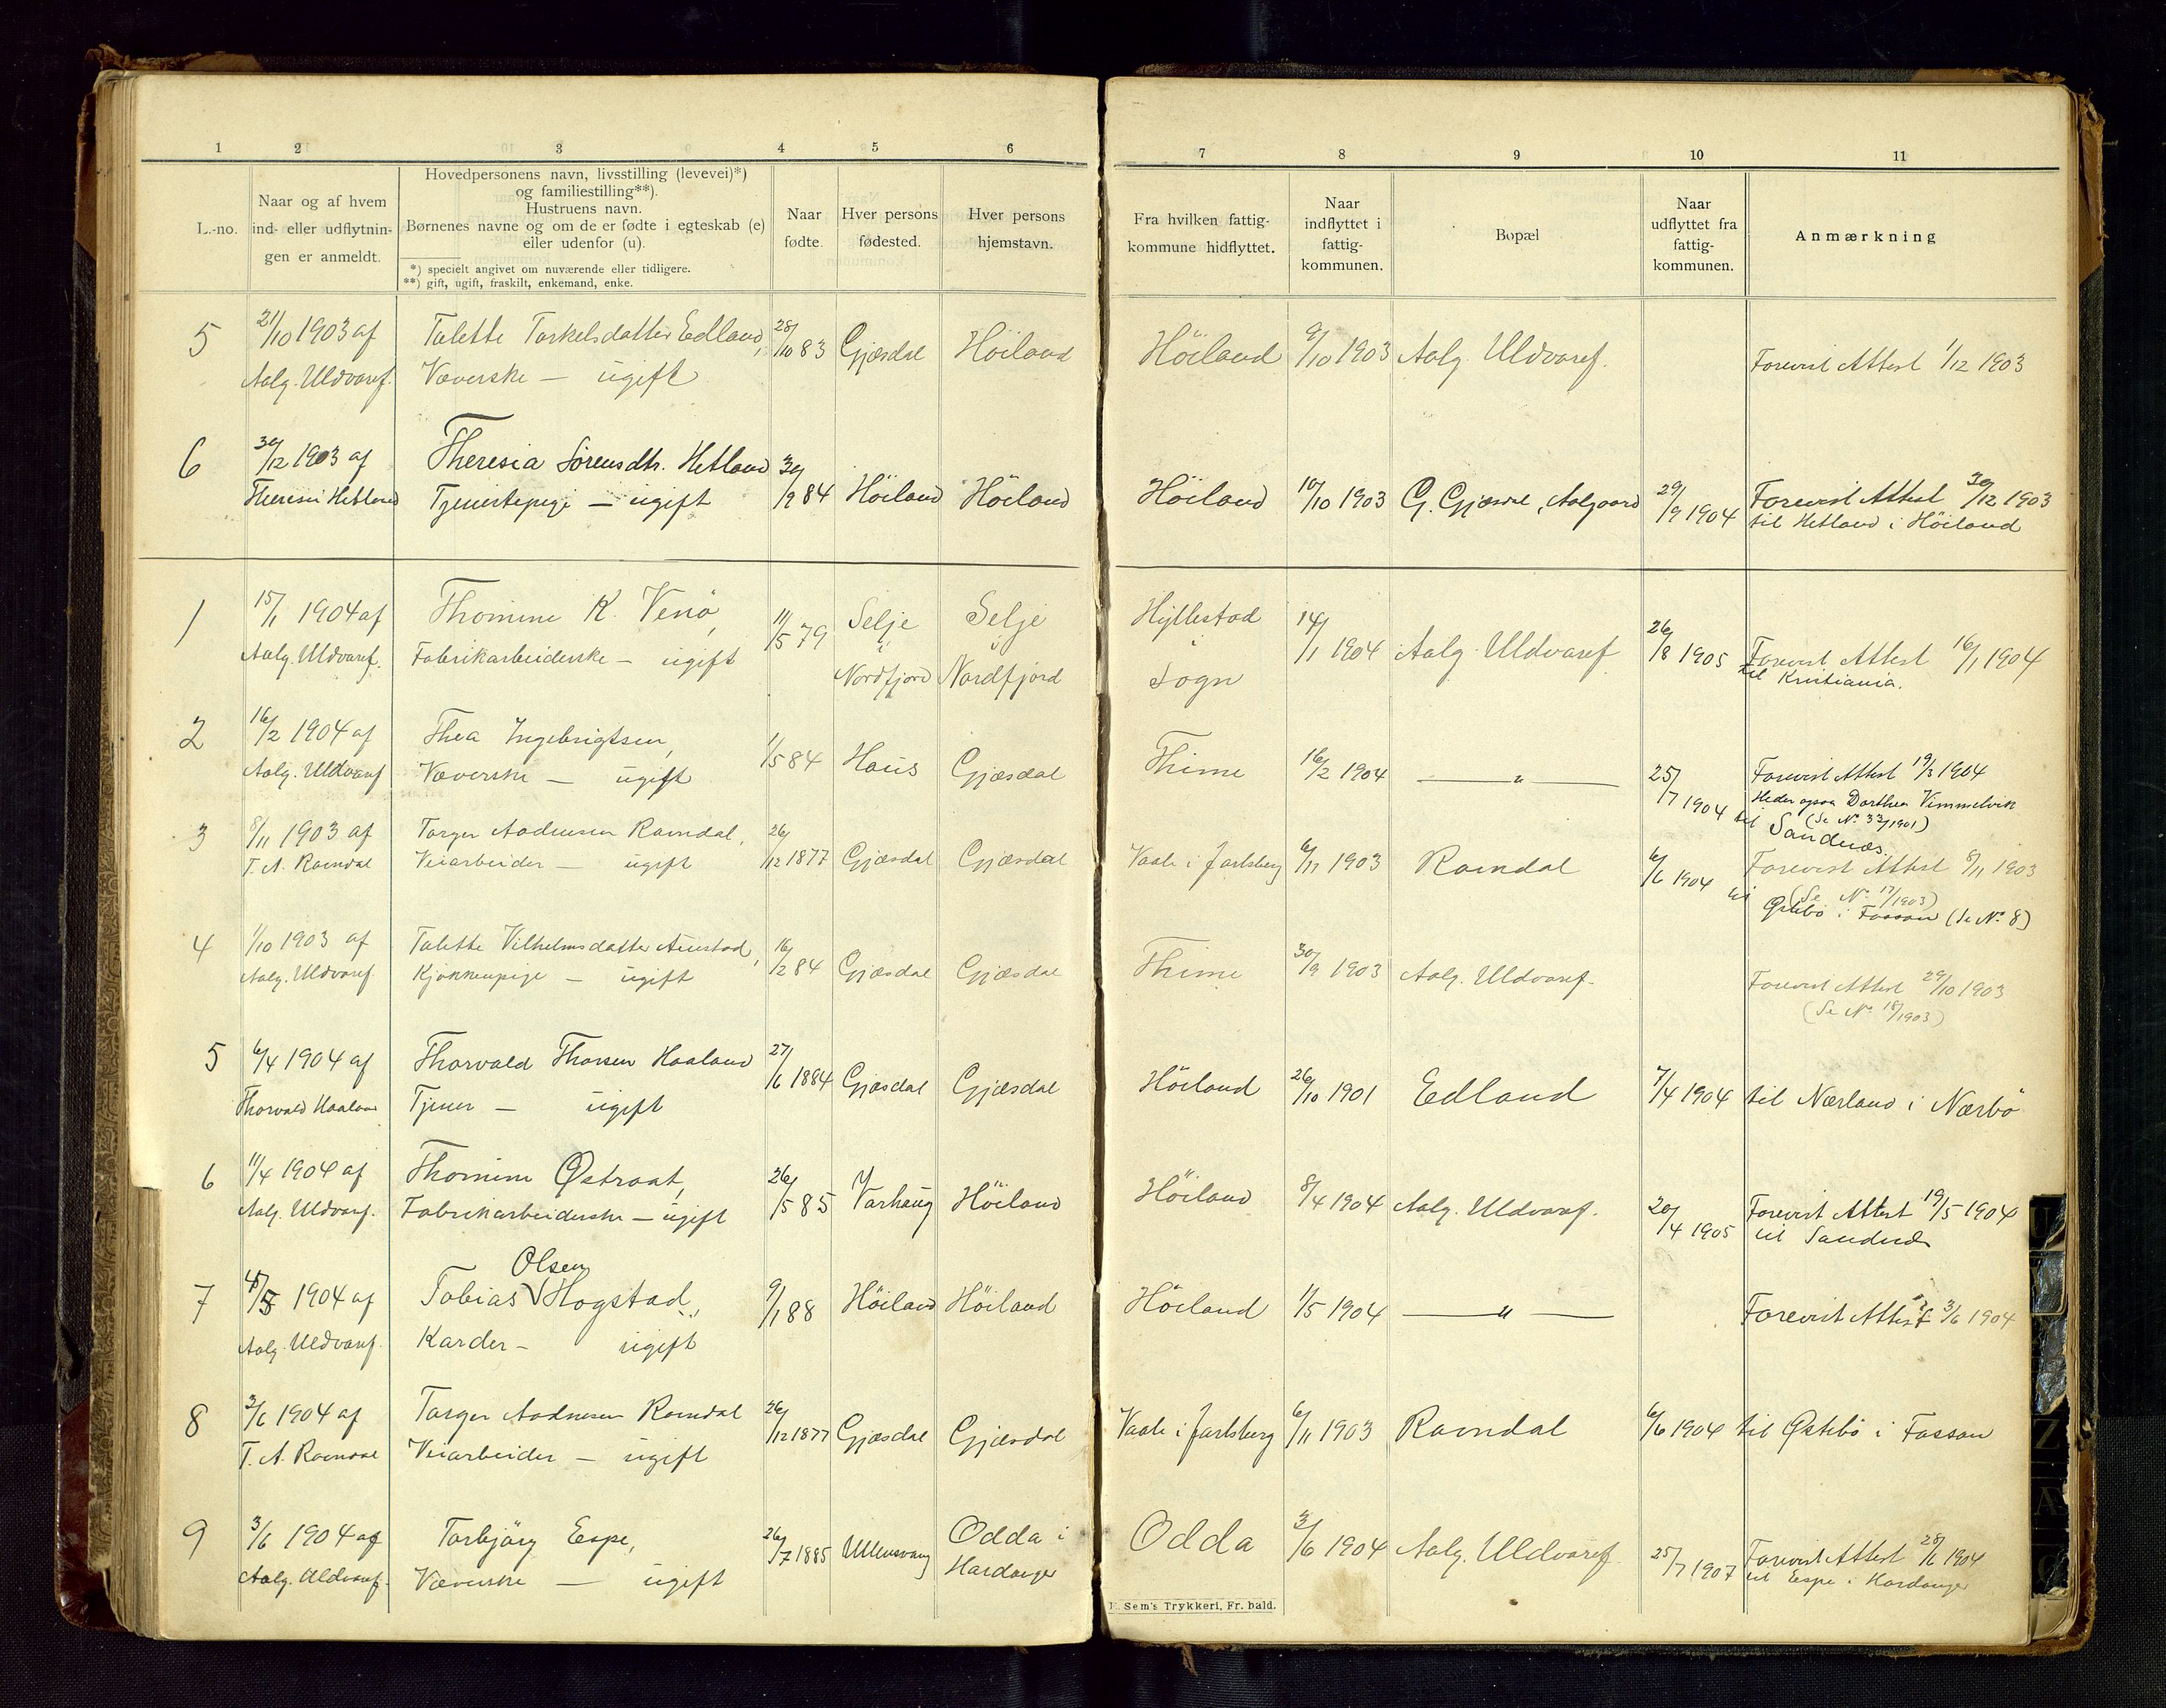 1 2 3 4 5 6 7 8 9 10 11
L.-no.
Naar og af hvem
ind- eller udflytnin-
gen er anmeldt.
Hovedpersonens navn, livsstilling (levevei)*)
og familiestilling**).
Hustruens navn.
Børnenes navne og om de er fødte i egteskab (e)
eller udenfor (u).
*) specielt angivet om nuværende eller tidligere.
**) gift, ugift, fraskilt, enkemand, enke.
Naar
fødte.
Hver persons
fødested.
Hver persons
hjemstavn.
Fra hvilken fattig-
kommune hidflyttet.
Naar
indflyttet i
fattig-
kommunen.
Bopæl
Naar
udflyttet fra
fattig-
kommunen.
Anmærkning
5 21/10 1903 af Talette Torkelsdatter Edland, 28/10 83 Gjæsdal Höiland Höiland 9/10 1903 Aalg. Uldvaref. Forevist Attest 1/12 1903
Aalg. Uldvaref. Væverske — ugift
6 30/12 1903 af Theresia Sörensdtr. Hetland 30/9 84 Höiland Höiland Höiland 10/10 1903 G. Gjæsdal, Aalgaard 29/9 1904 Forevist Attest 30/12 1903
Theresia Hetland Tjenestepige — ugift til Hetland i Höiland
1 15/1 1904 af Thomine K. Venö, 11/5 79 Selje Selje Hyllestad 14/1 1904 Aalg. Uldvaref 26/8 1905 Forevist Attest 16/1 1904
Aalg. Uldvaref. Fabrikarbeiderske — ugift i i i til Kristiania.
Nordfjord Nordfjord Sogn
2 16/2 1904 af Thea Ingebrigtsen, 1/5 84 Haus Gjæsdal Thime 16/2 1904 — " — 25/7 1904 Forevist Attest 19/3 1904
Aalg. Uldvaref Væverske — ugift Heder ogsaa Dorthea Vimmelvik
(Se No 33/1901)
til Sandnæs.
3 8/11 1903 af Torger Aadnesen Ramndal, 26/12 1877 Gjæsdal Gjæsdal Vaale i Jarlsberg 6/11 1903 Ramndal 6/6 1904 Forevist Attest 8/11 1903
T. A. Ramndal Veiarbeider — ugift (Se No 17/1903)
til Østebö i Fossan (Se No 8)
4 1/10 1903 af Talette Vilhelmsdatter Auestad, 16/2 84 Gjæsdal Gjæsdal Thime 30/9 1903 Aalg. Uldvaref. Forevist Attest 29/10 1903
Aalg. Uldvaref Kjökkenpige — ugift (Se No 18/1903)
5 6/4 1904 af Thorvald Thorsen Haaland 27/6 1884 Gjæsdal Gjæsdal Höiland 26/10 1901 Edland 7/4 1904 til Nærland i Nærbö
Thorvald Haaland Tjener — ugift
6 11/4 1904 af Thomine Østraat, 26/5 85 Varhaug Höiland Höiland 8/4 1904 Aalg. Uldvaref. 20/4 1905 Forevist Attest 19/5 1904
Aalg. Uldvaref. Fabrikarbeiderske — ugift til Sandnæs
Olsen
7 4/5 1904 af Tobias V Hogstad, 9/1 88 Höiland Höiland Höiland 1/5 1904 — " — Forevist Attest 3/6 1904
Aalg. Uldvaref. Karder — ugift
8 3/6 1904 af Torger Aadnesen Ramndal 26/12 1877 Gjæsdal Gjæsdal Vaale i Jarlsberg 6/11 1903 Ramndal 6/6 1904 til Østebö i Fossan
T. A. Ramndal Veiarbeider — ugift
9 3/6 1904 af Torbjörg Espe, 26/7 1885 Ullensvang Odda i Odda 3/6 1904 Aalg. Uldvaref 25/7 1907 Forevist Attest 28/6 1904
Aalg. Uldvaref. Væverske — ugift Hardanger til Espe i Hardanger
Sem's Trykkeri, Fr. hald.